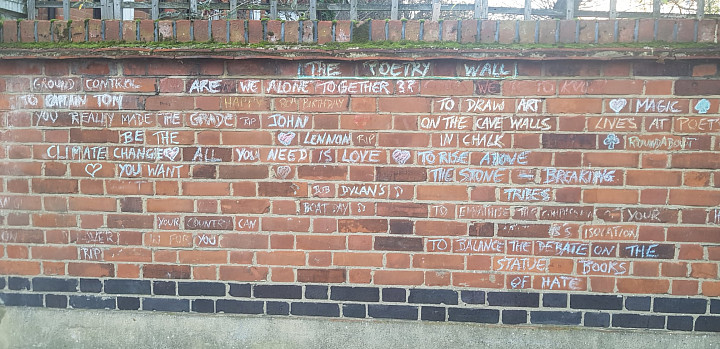 THE POETRY WALL
GROUND CONTROL
TO CAPTAIN TOM
YOU REALLY MADE THE GRADE RIP
BE THE
CLIMATE CHANGE
YOU WANT
ARE WE ALONE TOGETHER ??
HAPPY BIRTHDAY
JOHN
LENNON RIP
ALL YOU NEED IS LOVE
DYLAN'S
BOAT
YOUR COUNTRY CAN
YOU
RIP
WE
TO DRAW ART
ON THE CAVE WALLS
IN CHALK
TO RISE ABOVE
THE STONE - BREAKING
TRIBES
TO YOUR
ISOLATION
TO BALANCE THE DEBATE ON THE
STATUE BOOKS
OF HATE
MAGIC
LIVES AT POETS
ROUNDABOUT